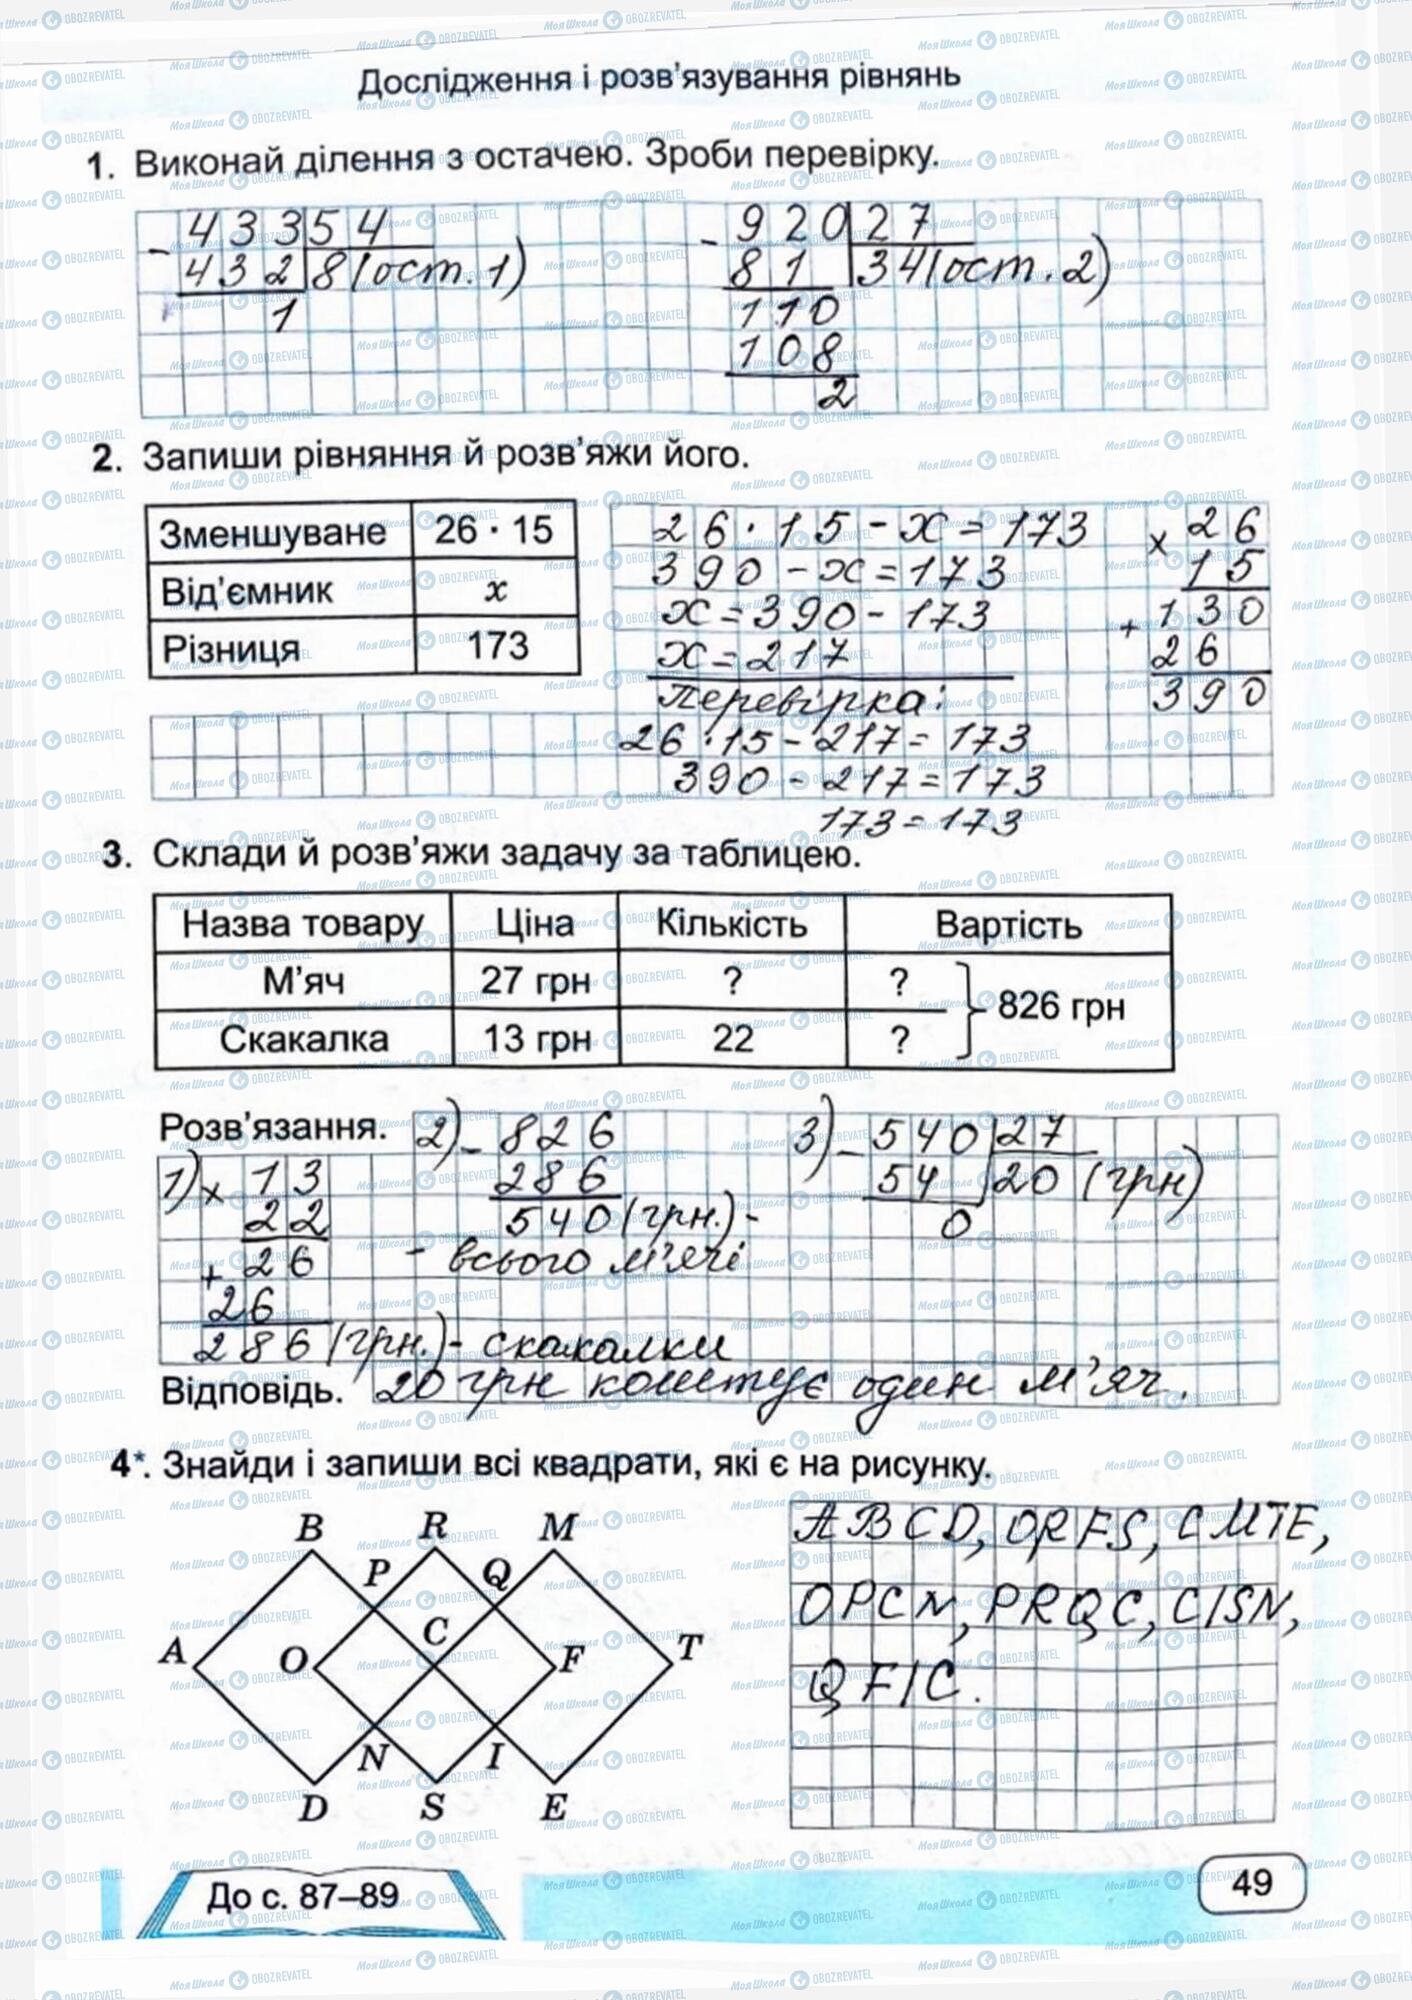 Дослідження і розв'язування рівнянь
1. Виконай ділення з остачею. Зроби перевірку.
- 433 54
432 8 (ост. 1)
1
- 920 27
81 34 (ост. 2)
110
108
2
2. Запиши рівняння й розв'яжи його.
Зменшуване 26 · 15
Від'ємник x
Різниця 173
26 · 15 - x = 173
390 - x = 173
x = 390 - 173
x = 217
Перевірка:
26 · 15 - 217 = 173
390 - 217 = 173
173 = 173
x 26
15
+ 130
26
390
3. Склади й розв'яжи задачу за таблицею.
Назва товару Ціна Кількість Вартість
М'яч 27 грн ? ? 826 грн
Скакалка 13 грн 22 ?
Розв'язання.
1) x 13
22
+ 26
26
286 (грн.) - скакалки
2) - 826
286
540 (грн.) -
- всього м'ячі
3) - 540 27
54 20 (грн)
0
Відповідь. 20 грн коштує один м'яч.
4*. Знайди і запиши всі квадрати, які є на рисунку.
B R M
P Q
A O C F T
N I
D S E
ABCD, ORFS, CMTE,
OPCN, PRQC, CISN,
QFIC.
До с. 87–89
49
МояШкола OBOZREVATEL